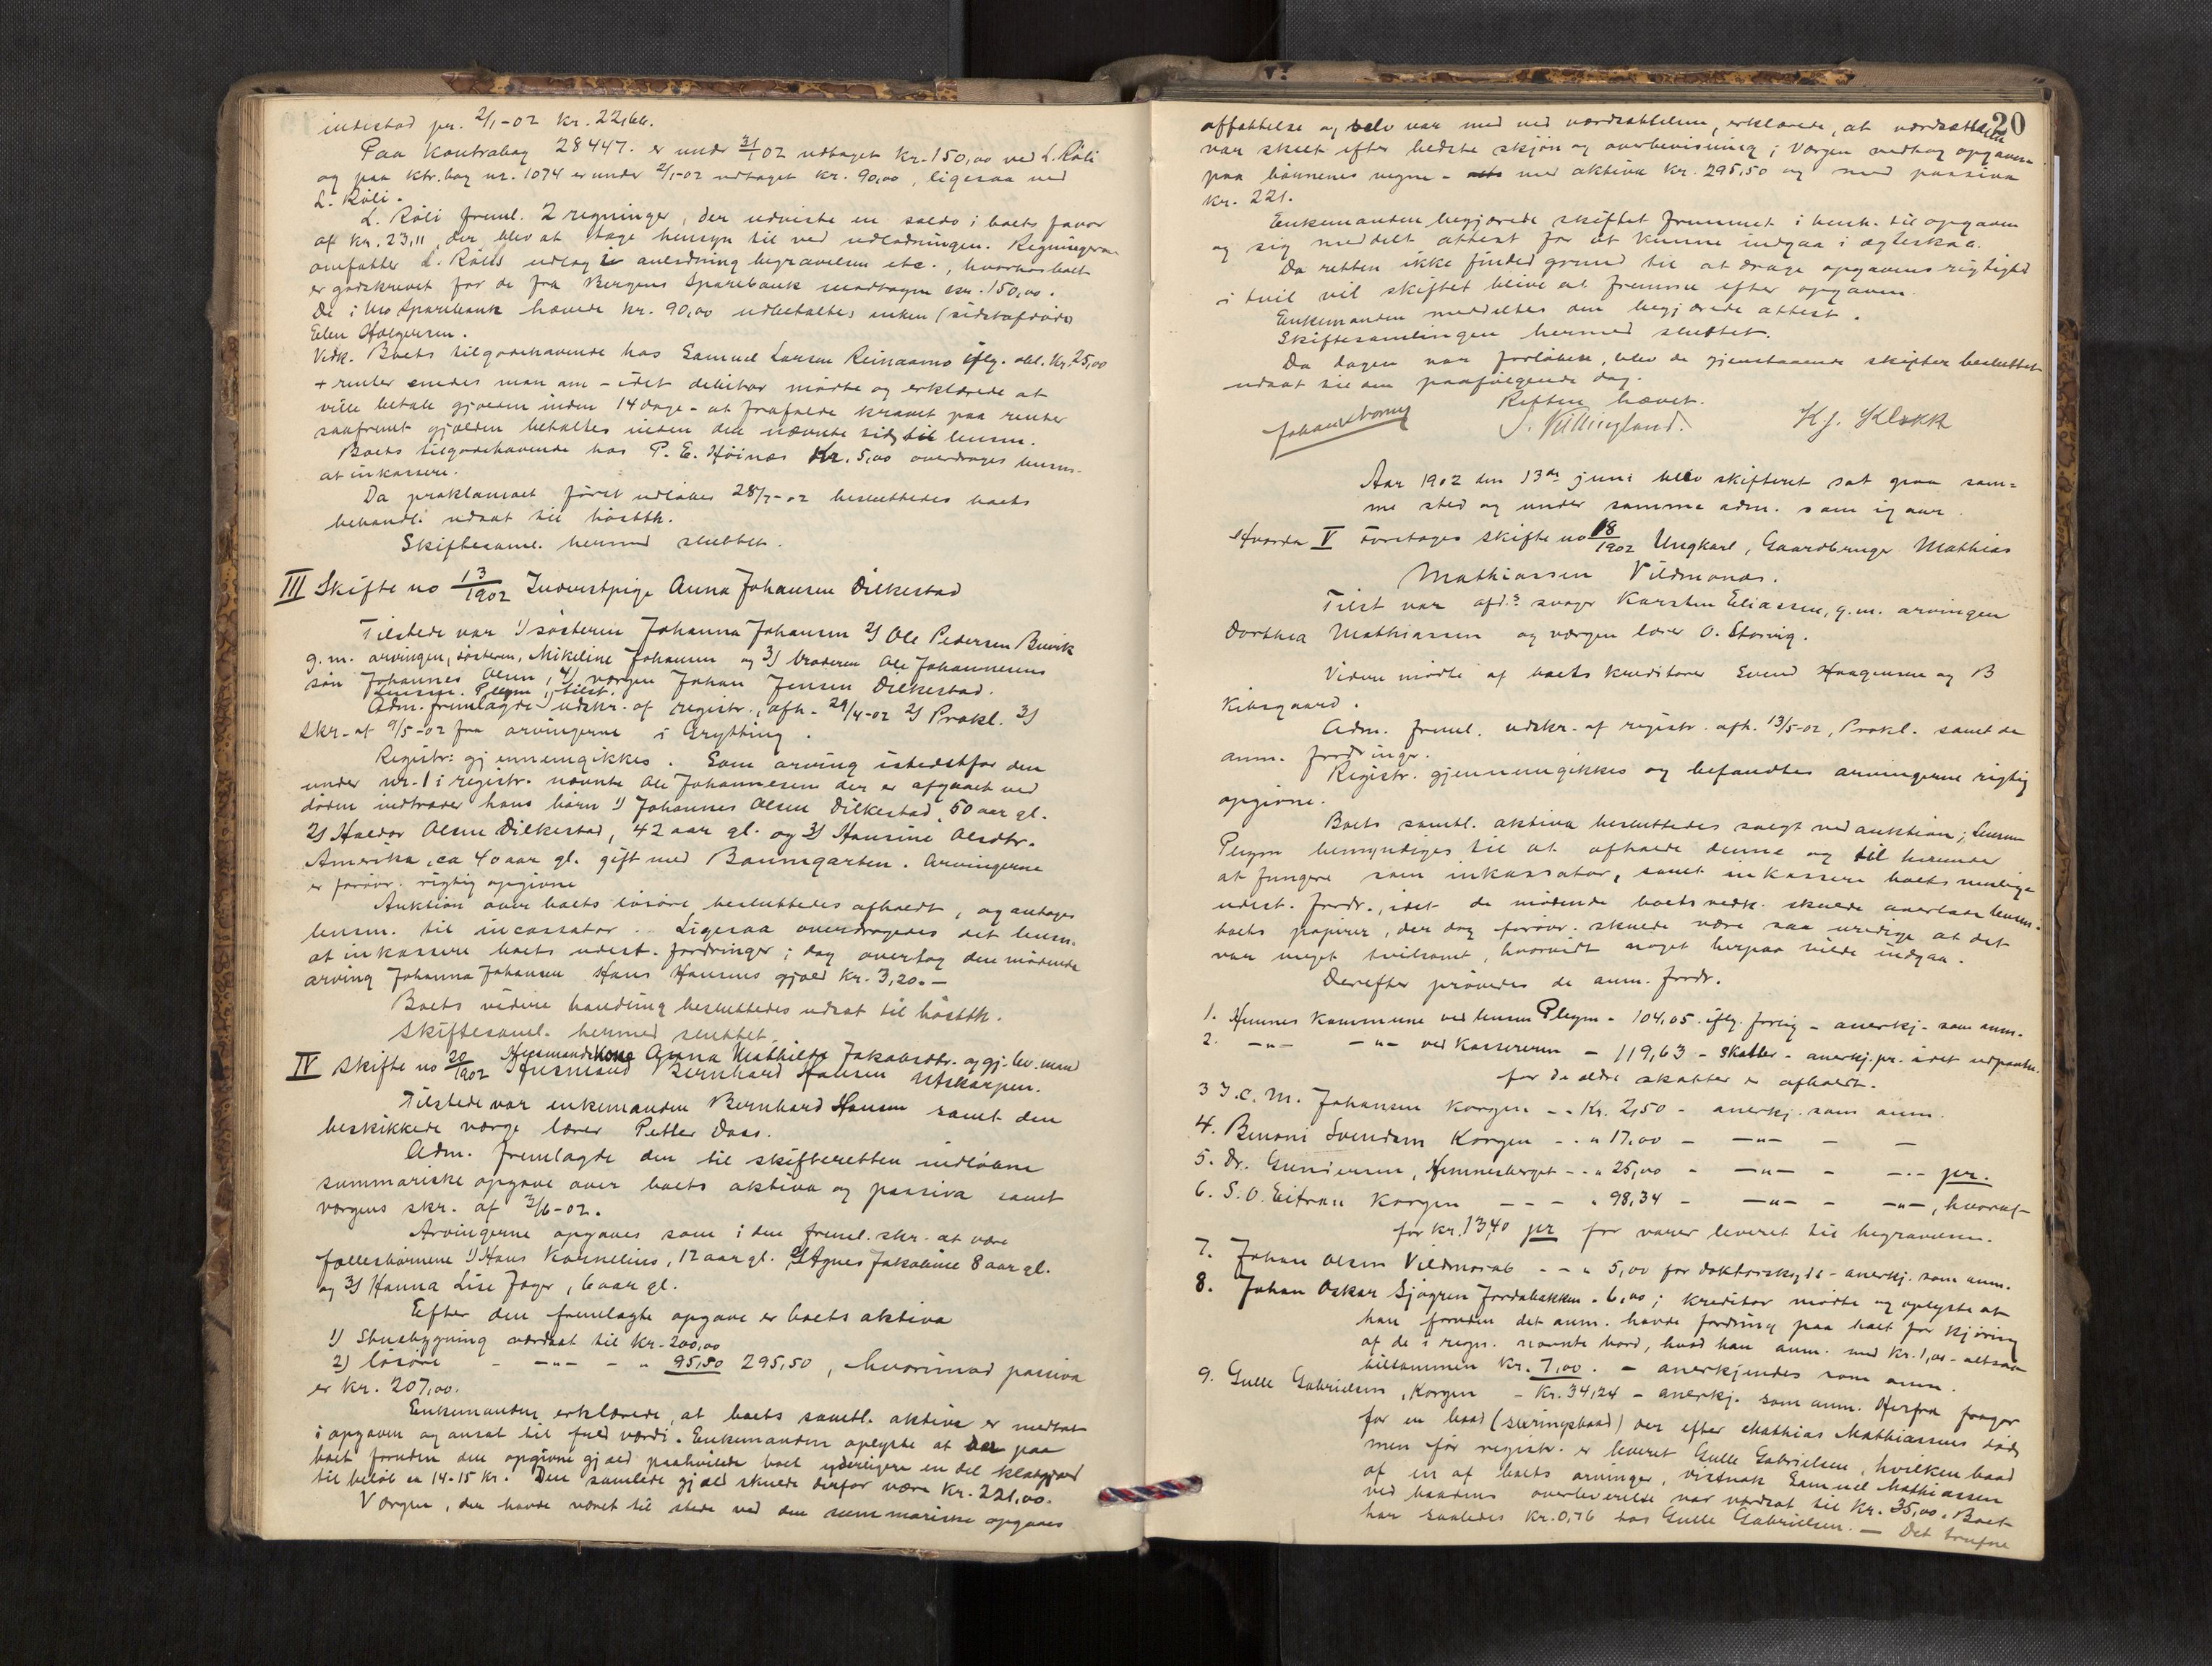 indestod pr. 2/1-02 kr. 22,66.
Paa Kontrabog 28447. er under 3/1 02 udtaget kr. 150,00 ved L. Röli
og paa ktr.bog nr. 1074 er under 2/1-02 udtaget kr. 90,00, ligesaa ved
L. Röli.
L. Röli freml. 2 regninger, der udviste en saldo i boets favør
af kr. 23,11, der blev at tage hensyn til ved udlodningen. Regningerne
omfatter L. Rölis udlæg i anledning begravelsen etc., hvorhos boet
er godskrevet for de fra Bergens Sparebank modtagne kr. 150,00.
De i Mo Sparebank hævede kr. 90,00 udbetaltes enken (sidstafdøde)
Ellen Holgersen.
Vedk. Boets tilgodehavende hos Samuel Larsen Reinaamo iflg. obl. Kr. 25,00
+ renter enedes man om - idet debitor mødte og erklærede at
ville betale gjælden inden 14 dage - at frafalde kravet paa renter
saafremt gjælden betaltes inden den nævnte tid til lensm.
Boets tilgodehavende hos P. E. Höinæs Kr. 5,00 overdroges lensm.
at inkassere.
Da proklamaet først udløber 28/7-02 besluttedes boets
behandl. udsat til höstth.
Skiftesaml. hermed sluttet.
III Skifte no 13/1902 Inderstpige Anna Johansen Dilkestad
Tilstede var 1) søsteren Johanna Johansen 2) Ole Pedersen Buvik
g.m. arvingen, søsteren, Mikeline Johansen og 3) broderen Ole Johannesens
søn Johannes Olsen, 4) værgen Johan Jensen Dilkestad.
Lensm. Pleym tilst.
Adm. fremlagde 1) udskr. af registr., afh. 29/4-02 2) Prokl. 3)
skr. af 9/5-02 fra arvingerne i Grytting.
Registr: gjennemgikkes. Som arving istedetfor den
under nr. 1 i registr. nævnte Ole Johannesen der er afgaaet ved
døden indtræder hans børn 1) Johannes Olsen Dilkestad, 50 aar gl.
2) Haldor Olsen Dilkestad, 42 aar gl. og 3) Hansine Olsdtr.
Amerika, ca 40 aar gl. gift med Baumgarten. Arvingerne
er forøvr. rigtig opgivne
Auktion over boets løsøre besluttedes afholdt, og antages
lensm. til incassator. Ligesaa overdragedes det lensm.
at inkassere boets udest. fordringer; dog overtog den mødende
arving Johanna Johansen Hans Hansens gjæld kr. 3,20.-
Boets videre handling besluttedes udsat til höstth.
Skiftesaml. hermed sluttet.
IV Skifte no 20/1902 Husmandskone Anna Mathilde Jakobsdtr. og gj.lev. mand
Husmand Bernhard Hansen Utskarpen.
Tilstede var enkemanden Bernhard Hansen samt den
beskikkede værge lærer Petter Dass.
Adm. fremlagde den til skifteretten indløbne
summariske opgave over boets aktiva og passiva samt
værgens skr. af 3/6-02.
Arvingerne opgaves som i den freml. skr. at være
fællesbørnene 1) Hans Kornelius, 12 aar gl. 2) Agnes Jakobine 8 aar gl.
og 3) Hanna Lise Jager, 6 aar gl.
Efter den fremlagte opgave er boets aktiva
1) Stuebygning værdsat til kr. 200,00
2) løsøre - -"- - " 95,50 295,50, hvorimod passiva
er kr. 207,00.
Enkemanden erklærede, at boets samtl. aktiva er medtat
i opgaven og ansat til fuld værdi. Enkemanden oplyste at der paa
boet foruden den opgivne gjæld paahvilede boet yderligere en del klatgjæld
til beløb ca 14-15 kr. Den samlede gjæld skulde derfor være kr. 221,00.
Værgen, der havde været til stede ved den summariske opgaves
20
affattelse og selv var med ved værdsættelsen, erklærede, at værdsættelsen
var skeet efter bedste skjøn og overbevisning; Værgen vedtog opgaven
paa børnenes vegne - med aktiva kr. 295,50 og med passiva
kr. 221.
Enkemanden begjærede skiftet fremmet i henh. til opgaven
og sig meddelt attest for at kunne indgaa i ægteskab.
Da retten ikke finder grund til at drage opgavens rigtighed
i tvil vil skiftet blive at fremme efter opgaven.
Enkemanden meddeltes den begjærede attest.
Skiftesamlingen hermed sluttet.
Da dagen var forløben, blev de gjenstaaende skifter besluttet
udsat til den paafølgende dag.
Retten hævet.
J. Killingland. Kj. Klokk
Aar 1902 den 13de juni blev skifteret sat paa sam-
me sted og under samme adm. som igaar
Hvorda V Foretages Skifte no 18/1902 Ungkarl, Gaardbruger Mathias
Mathiassen Vildmones.
Tilst var afd:s svoger Karsten Eliassen, g.m. arvingen
Dorthea Mathiassen og værgen lærer O. Storvig.
Videre mødte af boets kreditorer Svend Haagensen og B
Kibsgaard.
Adm. freml. udskr. af registr. afh. 13/5-02, Prokl. samt de
anm. fordringer.
Registr. gjennemgikkes og befandtes arvingerne rigtig
opgivne.
Boets samtl. aktiva besluttedes solgt ved auktion; lensm
Pleym bemyndiges til at afholde denne og til herunder
at fungere som inkassator, samt inkassere boets mulige
udest. fordr., idet de mødende boets vedk. skulde overlade lensm.
boets papirer, der dog forøvr. skulde være saa uredige at det
var meget tvilsomt, hvorvidt noget herpaa vilde indgaa.
Derefter prøvedes de anm. fordr.
1. Hemnes Kommune ved lensm Pleym - 104,05 iflg. forlig - anerkj. som anm.
2. -"- -"- ved Kassereren - 119,63 - skatter - anerkj. pr. idet udpantn.
for de ældre skatter er afholdt.
3 I.C.M. Johansen Korgen - - Kr. 2,50 - anerkj. som anm.
4. Benoni Svendsen Korgen - - " 17,00 - -"- - -
5. Dr. Gundersen, Hemnesberget - - " 25,00 - -"- - -"- pr.
6. S.O. Eitran Korgen - - - " 98,34 - -"- - -"-, hvoraf
for kr. 13,40 pr for varer leveret til begravelsen.
7. Johan Olsen Vildmosab - - " 5,00 for doktorskyds - anerkj. som anm.
8. Johan Oskar Sjøgren Fordabakken - 6,00; kreditor mødte og oplyste at
han foruden det anm. havde fordring paa boet for kjøring
af de i regn. nævnte bord, hvad han anm. med kr. 1,00 - altsaa
tilsammen kr. 7,00. - anerkjendes som anm.
9. Gulle Gabrielsen, Korgen - Kr. 34,24 - anerkj. som anm. Herfra fragaar
for en baad (skiringsbaad) der efter Mathias Mathiassens død,
men før registr. er leveret Gulle Gabrielsen, hvilken baad
af en af boets arvinger, vistnok Samuel Mathiassen
ved baadens overleverelse var værdsat til kr. 35,00. Boet
har saaledes kr. 0,76 hos Gulle Gabrielsen. - Det trufne